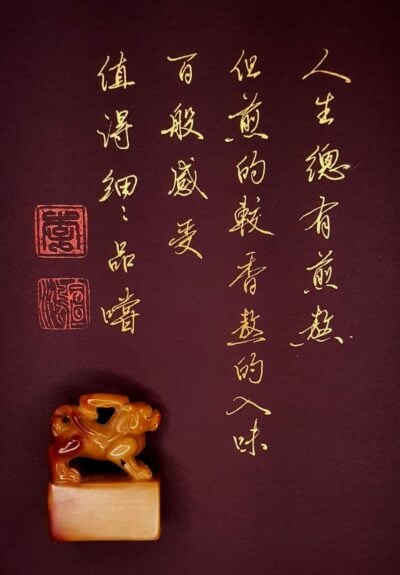 人生總有煎熬
但煎的較香熬的入味
百般感受
值得細〻品嚐